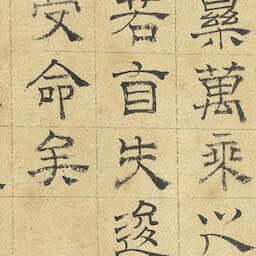 萬乘以
若盲失逡
受命矣